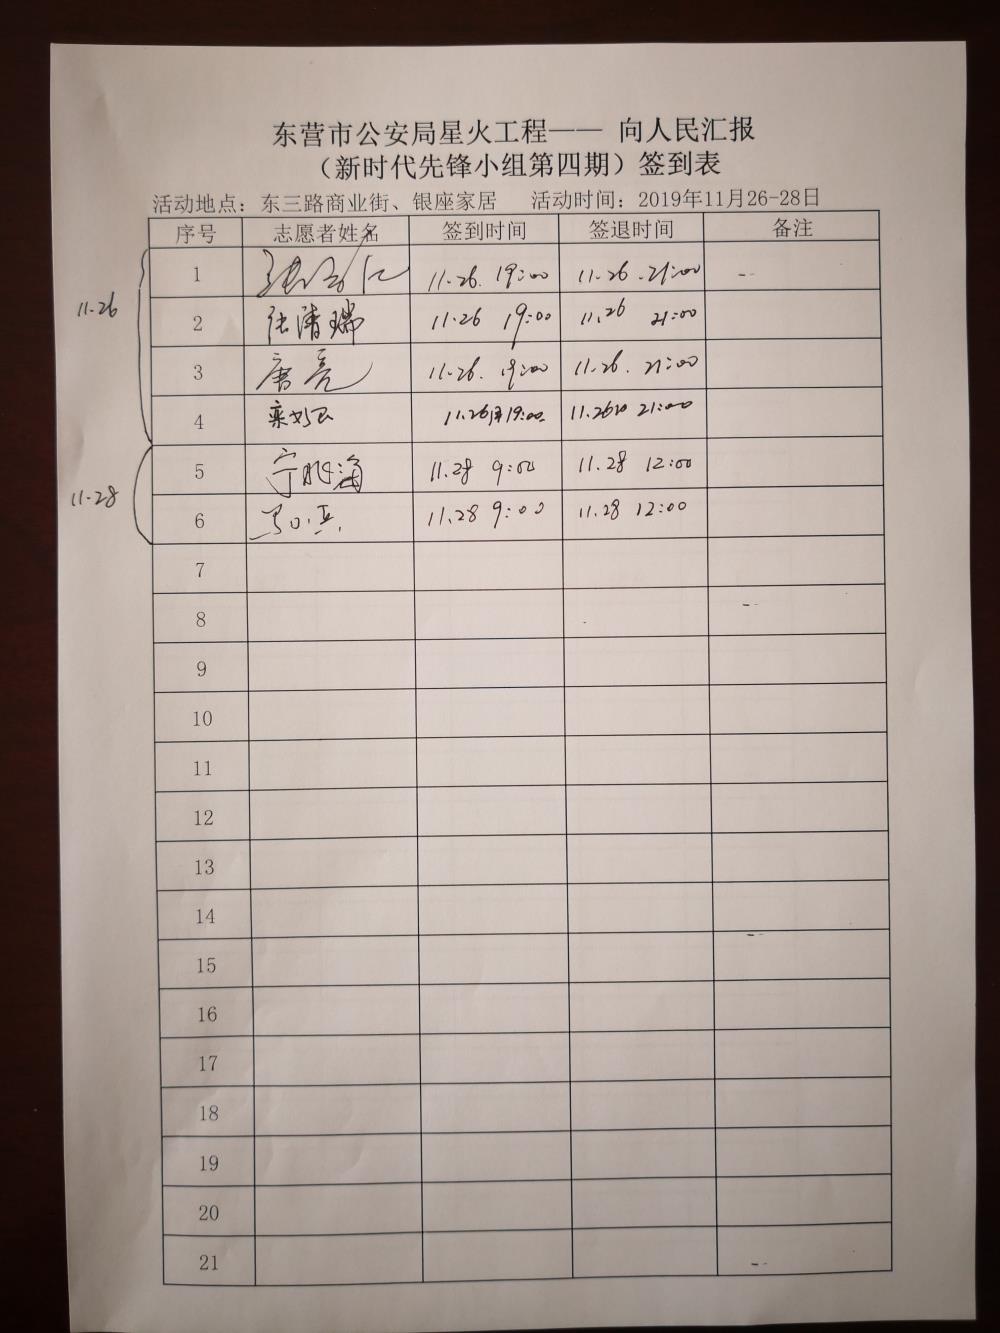 东营市公安局星火工程—— 向人民汇报
（新时代先锋小组第四期）签到表
活动地点：东三路商业街、银座家居 活动时间：2019年11月26-28日
序号 志愿者姓名 签到时间 签退时间 备注
11.26
1 11.26. 19:00 11.26. 21:00
2 张清瑞 11.26 19:00 11.26 21:00
3 唐亮 11.26. 19:00 11.26. 21:00
4 11.26 19:00 11.26 21:00
11.28
5 11.28 9:00 11.28 12:00
6 11.28 9:00 11.28 12:00
7
8
9
10
11
12
13
14
15
16
17
18
19
20
21